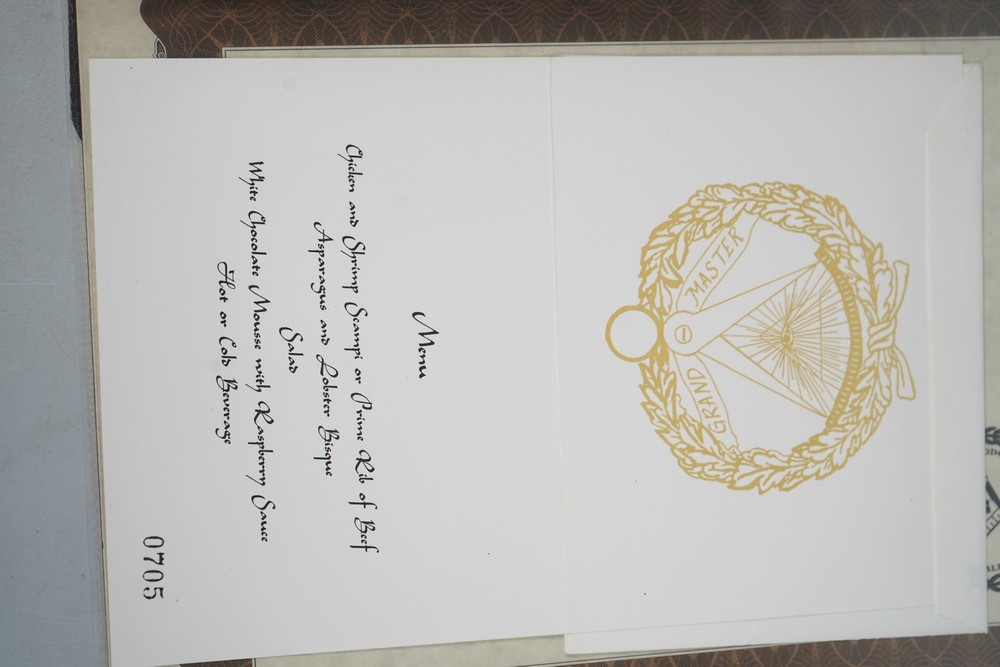 GRAND MASTER
Menu
Chicken and Shrimp Scampi or Prime Rib of Beef
Asparagus and Lobster Bisque
Salad
White Chocolate Mousse with Raspberry Sauce
Hot or Cold Beverage
0705